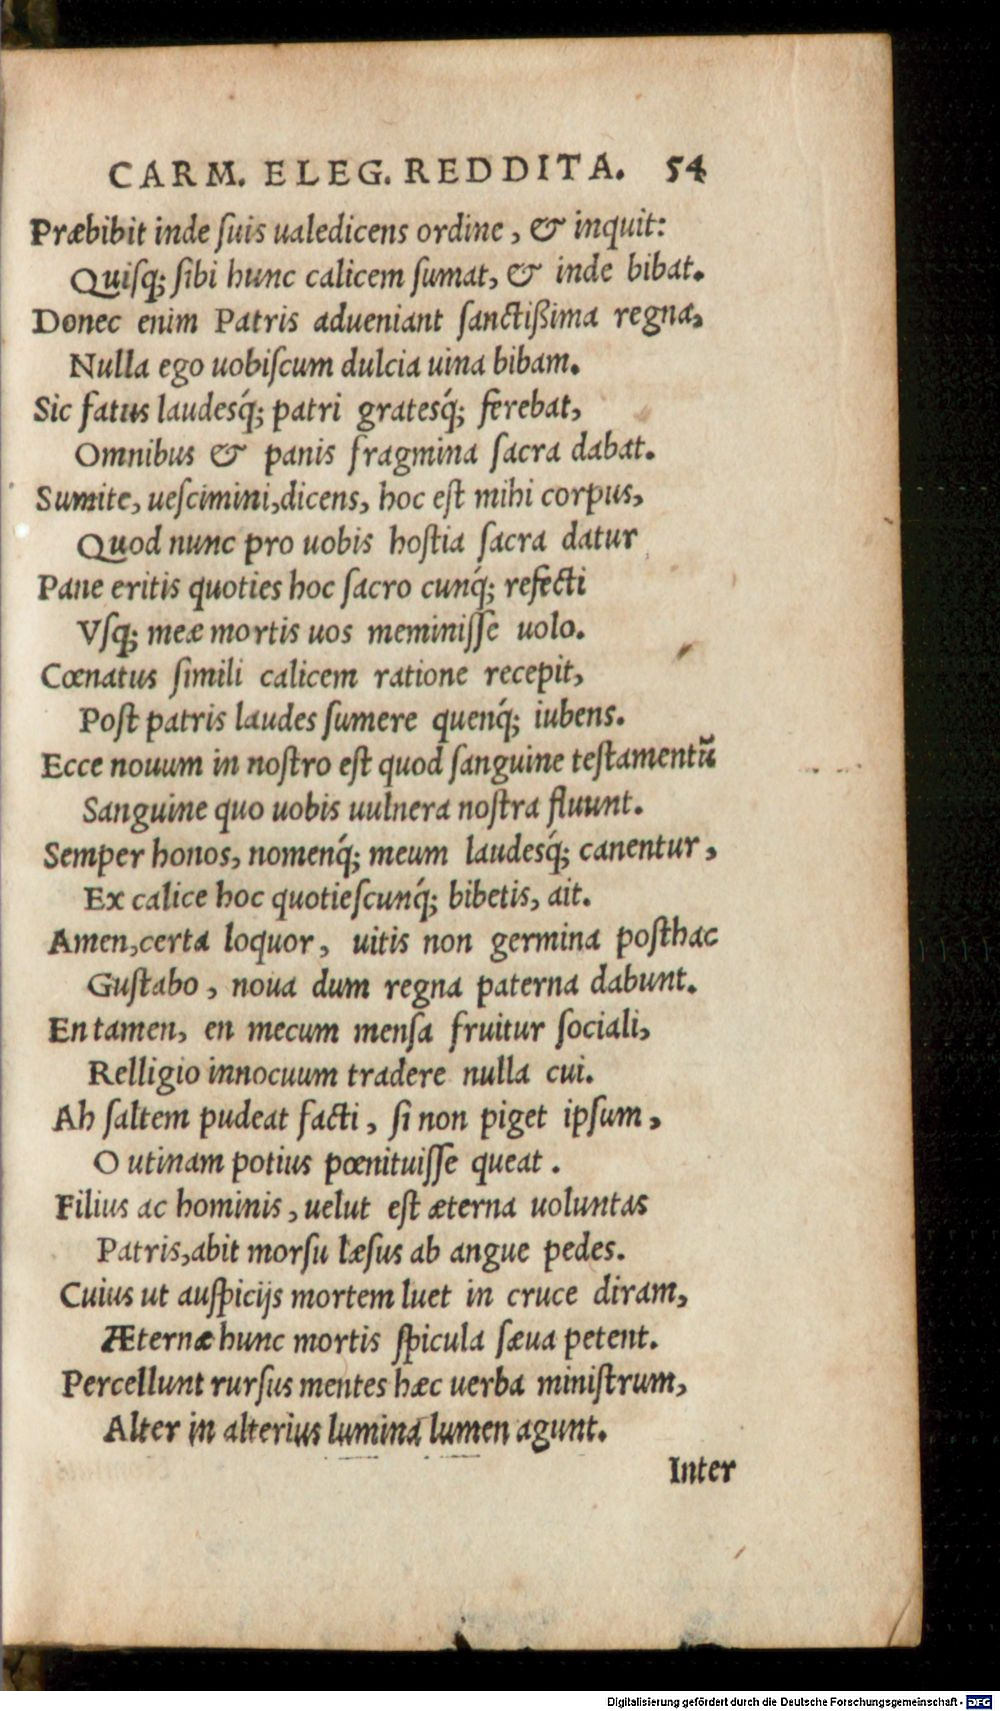 CARM. ELEG. REDDITA. 54
Præbibit inde ſuis ualedicens ordine, & inquit:
Quiſq; ſibi hunc calicem ſumat, & inde bibat.
Donec enim Patris adueniant ſanctißima regna,
Nulla ego uobiſcum dulcia uina bibam.
Sic fatus laudesq́; patri gratesq́; ferebat,
Omnibus & panis fragmina ſacra dabat.
Sumite, ueſcimini, dicens, hoc eſt mihi corpus,
Quod nunc pro uobis hoſtia ſacra datur
Pane eritis quoties hoc ſacro cunq́; refecti
Vſq; meæ mortis uos meminiſſe uolo.
Cœnatus ſimili calicem ratione recepit,
Poſt patris laudes ſumere quenq́; iubens.
Ecce nouum in noſtro eſt quod ſanguine teſtamentũ
Sanguine quo uobis uulnera noſtra fluunt.
Semper honos, nomenq́; meum laudesq́; canentur,
Ex calice hoc quotieſcunq́; bibetis, ait.
Amen, certa loquor, uitis non germina poſthac
Guſtabo, noua dum regna paterna dabunt.
En tamen, en mecum menſa fruitur ſociali,
Relligio innocuum tradere nulla cui.
Ah ſaltem pudeat facti, ſi non piget ipſum,
O utinam potius pœnituiſſe queat.
Filius ac hominis, uelut eſt æterna uoluntas
Patris, abit morſu læſus ab angue pedes.
Cuius ut auſpicijs mortem luet in cruce diram,
Æternæ hunc mortis ſpicula ſæua petent.
Percellunt rurſus mentes hæc uerba miniſtrum,
Alter in alterius lumina lumen agunt.
Inter
Digitalisierung gefördert durch die Deutsche Forschungsgemeinschaft - DFG